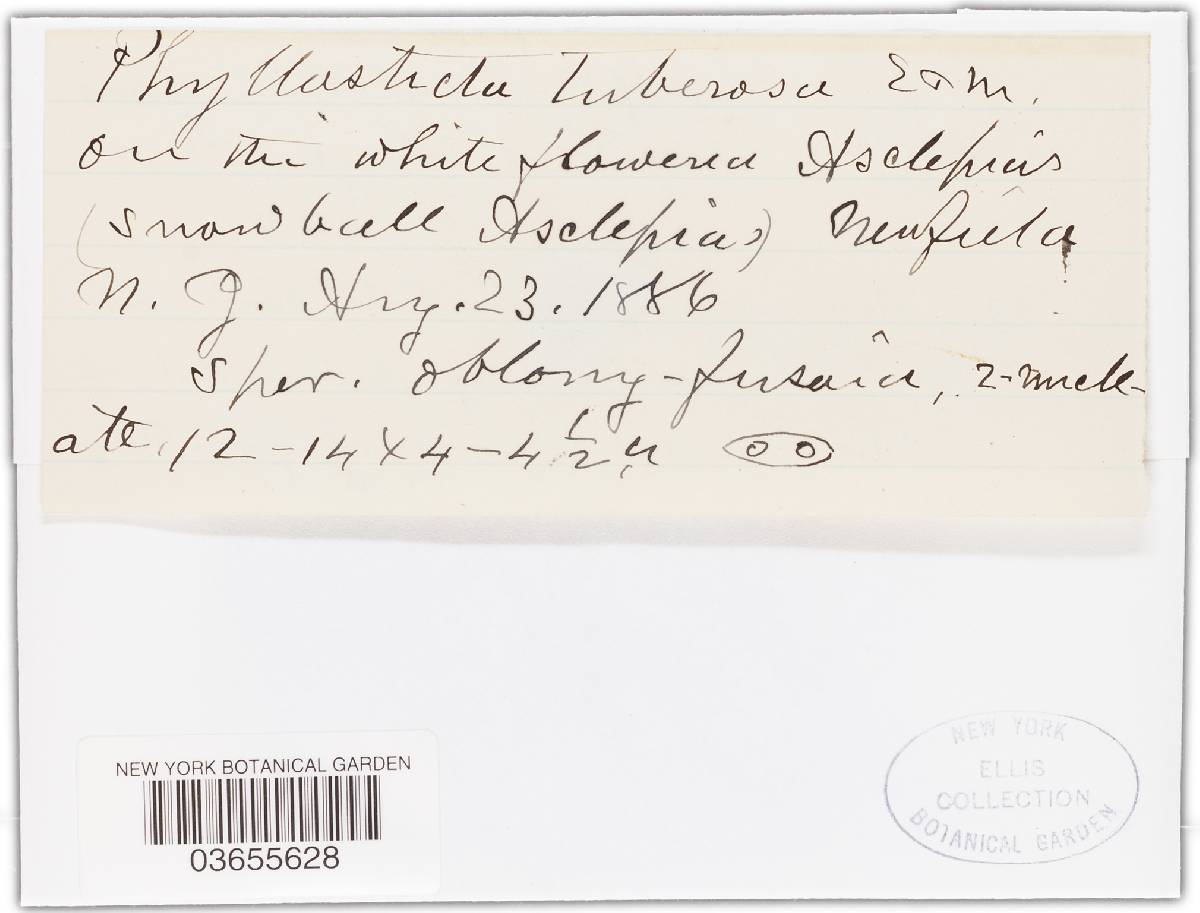 Phyllosticta tuberosa E & M.
on the white flowered Asclepias
(snowball Asclepias) Newfield
N. J. Aug. 23. 1886
Spor. oblong-fusoid, 2-nucle-
ate, 12-14 x 4-4 1/2 µ
NEW YORK BOTANICAL GARDEN
03655628
NEW YORK
ELLIS
COLLECTION
BOTANICAL GARDEN